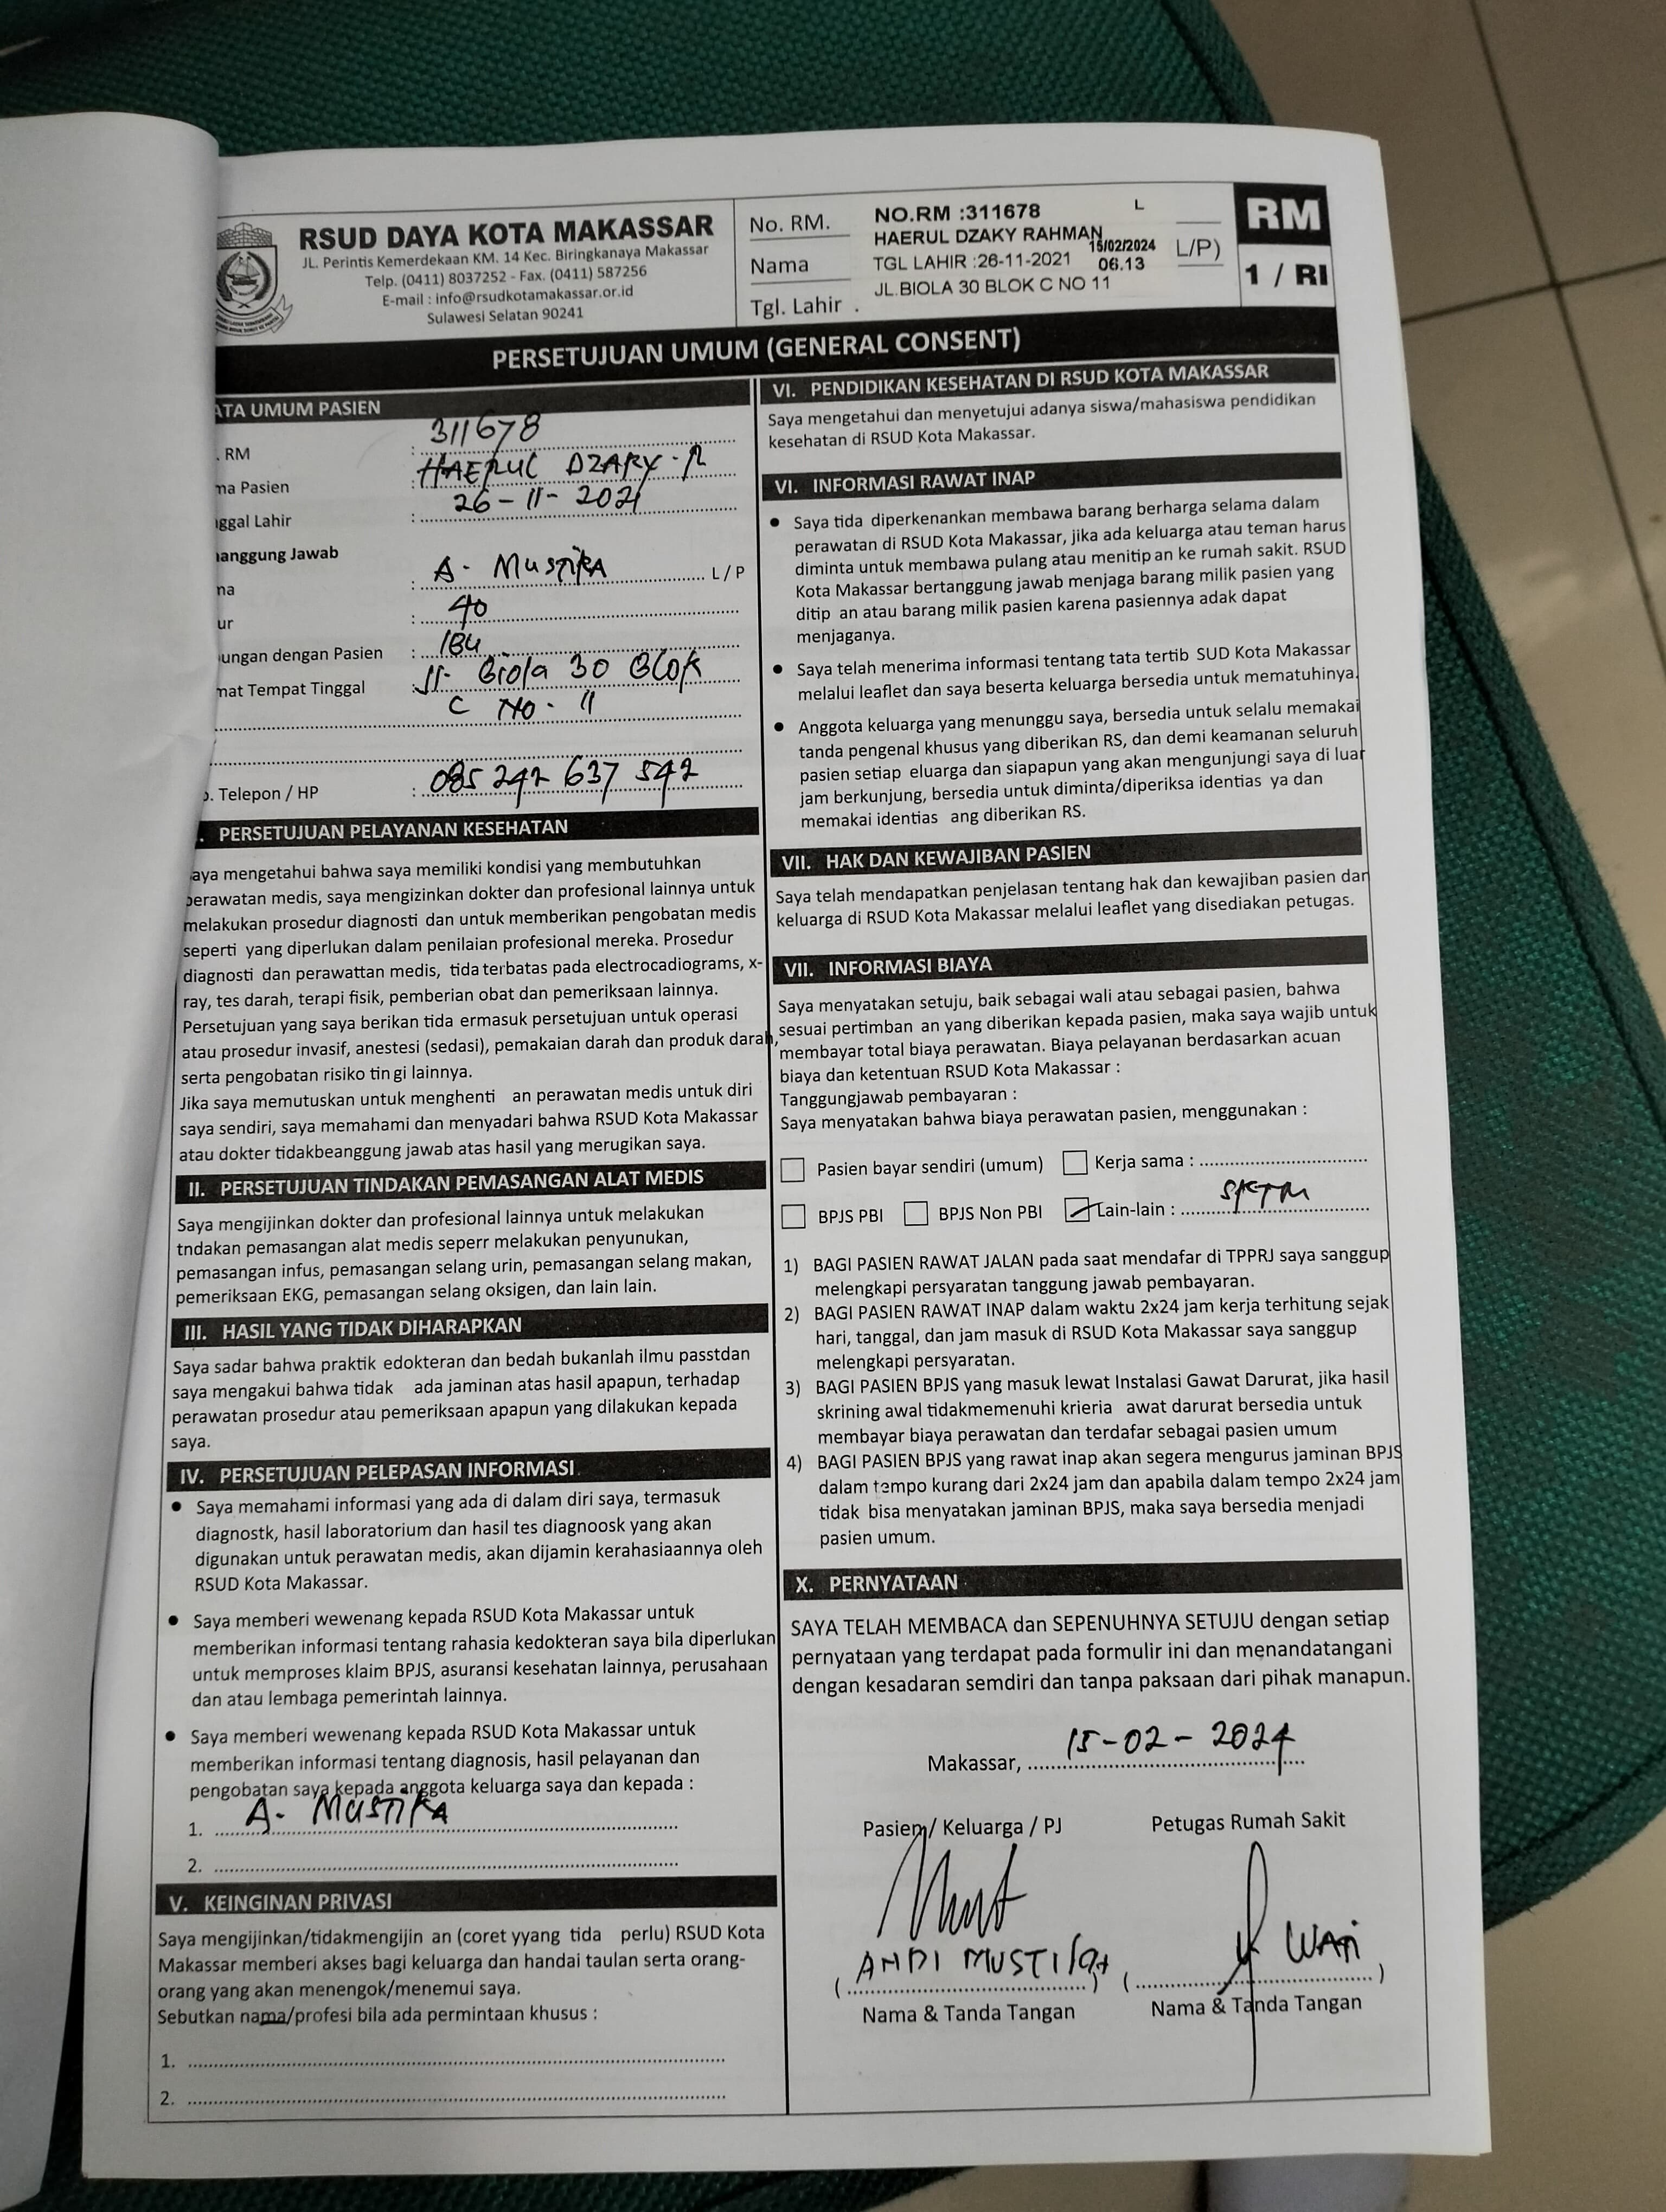 RSUD DAYA KOTA MAKASSAR
JL. Perintis Kemerdekaan KM. 14 Kec. Biringkanaya Makassar
Telp. (0411) 8037252 - Fax. (0411) 587256
E-mail : info@rsudkotamakassar.or.id
Sulawesi Selatan 90241
No. RM.
Nama
Tgl. Lahir .
NO.RM :311678 L
HAERUL DZAKY RAHMAN
15/02/2024
TGL LAHIR :26-11-2021 06.13
JL.BIOLA 30 BLOK C NO 11
L/P)
RM
1 / RI
PERSETUJUAN UMUM (GENERAL CONSENT)
ATA UMUM PASIEN
. RM : 311678
ma Pasien : HAERUL DZAKY . R
ggal Lahir : 26 - 11 - 2021
anggung Jawab
na : A. MUSTIKA L / P
ur : 40
ungan dengan Pasien : IBU
mat Tempat Tinggal : Jl. Biola 30 Blok
C No. 11
o. Telepon / HP : 085 242 637 542
. PERSETUJUAN PELAYANAN KESEHATAN
aya mengetahui bahwa saya memiliki kondisi yang membutuhkan
perawatan medis, saya mengizinkan dokter dan profesional lainnya untuk
melakukan prosedur diagnosti dan untuk memberikan pengobatan medis
seperti yang diperlukan dalam penilaian profesional mereka. Prosedur
diagnosti dan perawattan medis, tida terbatas pada electrocadiograms, x-
ray, tes darah, terapi fisik, pemberian obat dan pemeriksaan lainnya.
Persetujuan yang saya berikan tida ermasuk persetujuan untuk operasi
atau prosedur invasif, anestesi (sedasi), pemakaian darah dan produk darah,
serta pengobatan risiko tin gi lainnya.
Jika saya memutuskan untuk menghenti an perawatan medis untuk diri
saya sendiri, saya memahami dan menyadari bahwa RSUD Kota Makassar
atau dokter tidakbeanggung jawab atas hasil yang merugikan saya.
II. PERSETUJUAN TINDAKAN PEMASANGAN ALAT MEDIS
Saya mengijinkan dokter dan profesional lainnya untuk melakukan
tndakan pemasangan alat medis seperr melakukan penyunukan,
pemasangan infus, pemasangan selang urin, pemasangan selang makan,
pemeriksaan EKG, pemasangan selang oksigen, dan lain lain.
III. HASIL YANG TIDAK DIHARAPKAN
Saya sadar bahwa praktik edokteran dan bedah bukanlah ilmu passtdan
saya mengakui bahwa tidak ada jaminan atas hasil apapun, terhadap
perawatan prosedur atau pemeriksaan apapun yang dilakukan kepada
saya.
IV. PERSETUJUAN PELEPASAN INFORMASI
• Saya memahami informasi yang ada di dalam diri saya, termasuk
diagnostk, hasil laboratorium dan hasil tes diagnoosk yang akan
digunakan untuk perawatan medis, akan dijamin kerahasiaannya oleh
RSUD Kota Makassar.
• Saya memberi wewenang kepada RSUD Kota Makassar untuk
memberikan informasi tentang rahasia kedokteran saya bila diperlukan
untuk memproses klaim BPJS, asuransi kesehatan lainnya, perusahaan
dan atau lembaga pemerintah lainnya.
• Saya memberi wewenang kepada RSUD Kota Makassar untuk
memberikan informasi tentang diagnosis, hasil pelayanan dan
pengobatan saya kepada anggota keluarga saya dan kepada :
1. A. MUSTIKA
2.
V. KEINGINAN PRIVASI
Saya mengijinkan/tidakmengijin an (coret yyang tida perlu) RSUD Kota
Makassar memberi akses bagi keluarga dan handai taulan serta orang-
orang yang akan menengok/menemui saya.
Sebutkan nama/profesi bila ada permintaan khusus :
1.
2.
VI. PENDIDIKAN KESEHATAN DI RSUD KOTA MAKASSAR
Saya mengetahui dan menyetujui adanya siswa/mahasiswa pendidikan
kesehatan di RSUD Kota Makassar.
VI. INFORMASI RAWAT INAP
• Saya tida diperkenankan membawa barang berharga selama dalam
perawatan di RSUD Kota Makassar, jika ada keluarga atau teman harus
diminta untuk membawa pulang atau menitip an ke rumah sakit. RSUD
Kota Makassar bertanggung jawab menjaga barang milik pasien yang
ditip an atau barang milik pasien karena pasiennya adak dapat
menjaganya.
• Saya telah menerima informasi tentang tata tertib SUD Kota Makassar
melalui leaflet dan saya beserta keluarga bersedia untuk mematuhinya.
• Anggota keluarga yang menunggu saya, bersedia untuk selalu memakai
tanda pengenal khusus yang diberikan RS, dan demi keamanan seluruh
pasien setiap eluarga dan siapapun yang akan mengunjungi saya di luar
jam berkunjung, bersedia untuk diminta/diperiksa identias ya dan
memakai identias ang diberikan RS.
VII. HAK DAN KEWAJIBAN PASIEN
Saya telah mendapatkan penjelasan tentang hak dan kewajiban pasien dan
keluarga di RSUD Kota Makassar melalui leaflet yang disediakan petugas.
VII. INFORMASI BIAYA
Saya menyatakan setuju, baik sebagai wali atau sebagai pasien, bahwa
sesuai pertimban an yang diberikan kepada pasien, maka saya wajib untuk
membayar total biaya perawatan. Biaya pelayanan berdasarkan acuan
biaya dan ketentuan RSUD Kota Makassar :
Tanggungjawab pembayaran :
Saya menyatakan bahwa biaya perawatan pasien, menggunakan :
Pasien bayar sendiri (umum) Kerja sama :
BPJS PBI BPJS Non PBI Lain-lain : SKTM
1) BAGI PASIEN RAWAT JALAN pada saat mendafar di TPPRJ saya sanggup
melengkapi persyaratan tanggung jawab pembayaran.
2) BAGI PASIEN RAWAT INAP dalam waktu 2x24 jam kerja terhitung sejak
hari, tanggal, dan jam masuk di RSUD Kota Makassar saya sanggup
melengkapi persyaratan.
3) BAGI PASIEN BPJS yang masuk lewat Instalasi Gawat Darurat, jika hasil
skrining awal tidakmemenuhi krieria awat darurat bersedia untuk
membayar biaya perawatan dan terdafar sebagai pasien umum
4) BAGI PASIEN BPJS yang rawat inap akan segera mengurus jaminan BPJS
dalam tempo kurang dari 2x24 jam dan apabila dalam tempo 2x24 jam
tidak bisa menyatakan jaminan BPJS, maka saya bersedia menjadi
pasien umum.
X. PERNYATAAN
SAYA TELAH MEMBACA dan SEPENUHNYA SETUJU dengan setiap
pernyataan yang terdapat pada formulir ini dan menandatangani
dengan kesadaran semdiri dan tanpa paksaan dari pihak manapun.
Makassar, 15-02-2024
Pasien / Keluarga / PJ Petugas Rumah Sakit
( ANDI MUSTIKA ) ( WAN )
Nama & Tanda Tangan Nama & Tanda Tangan